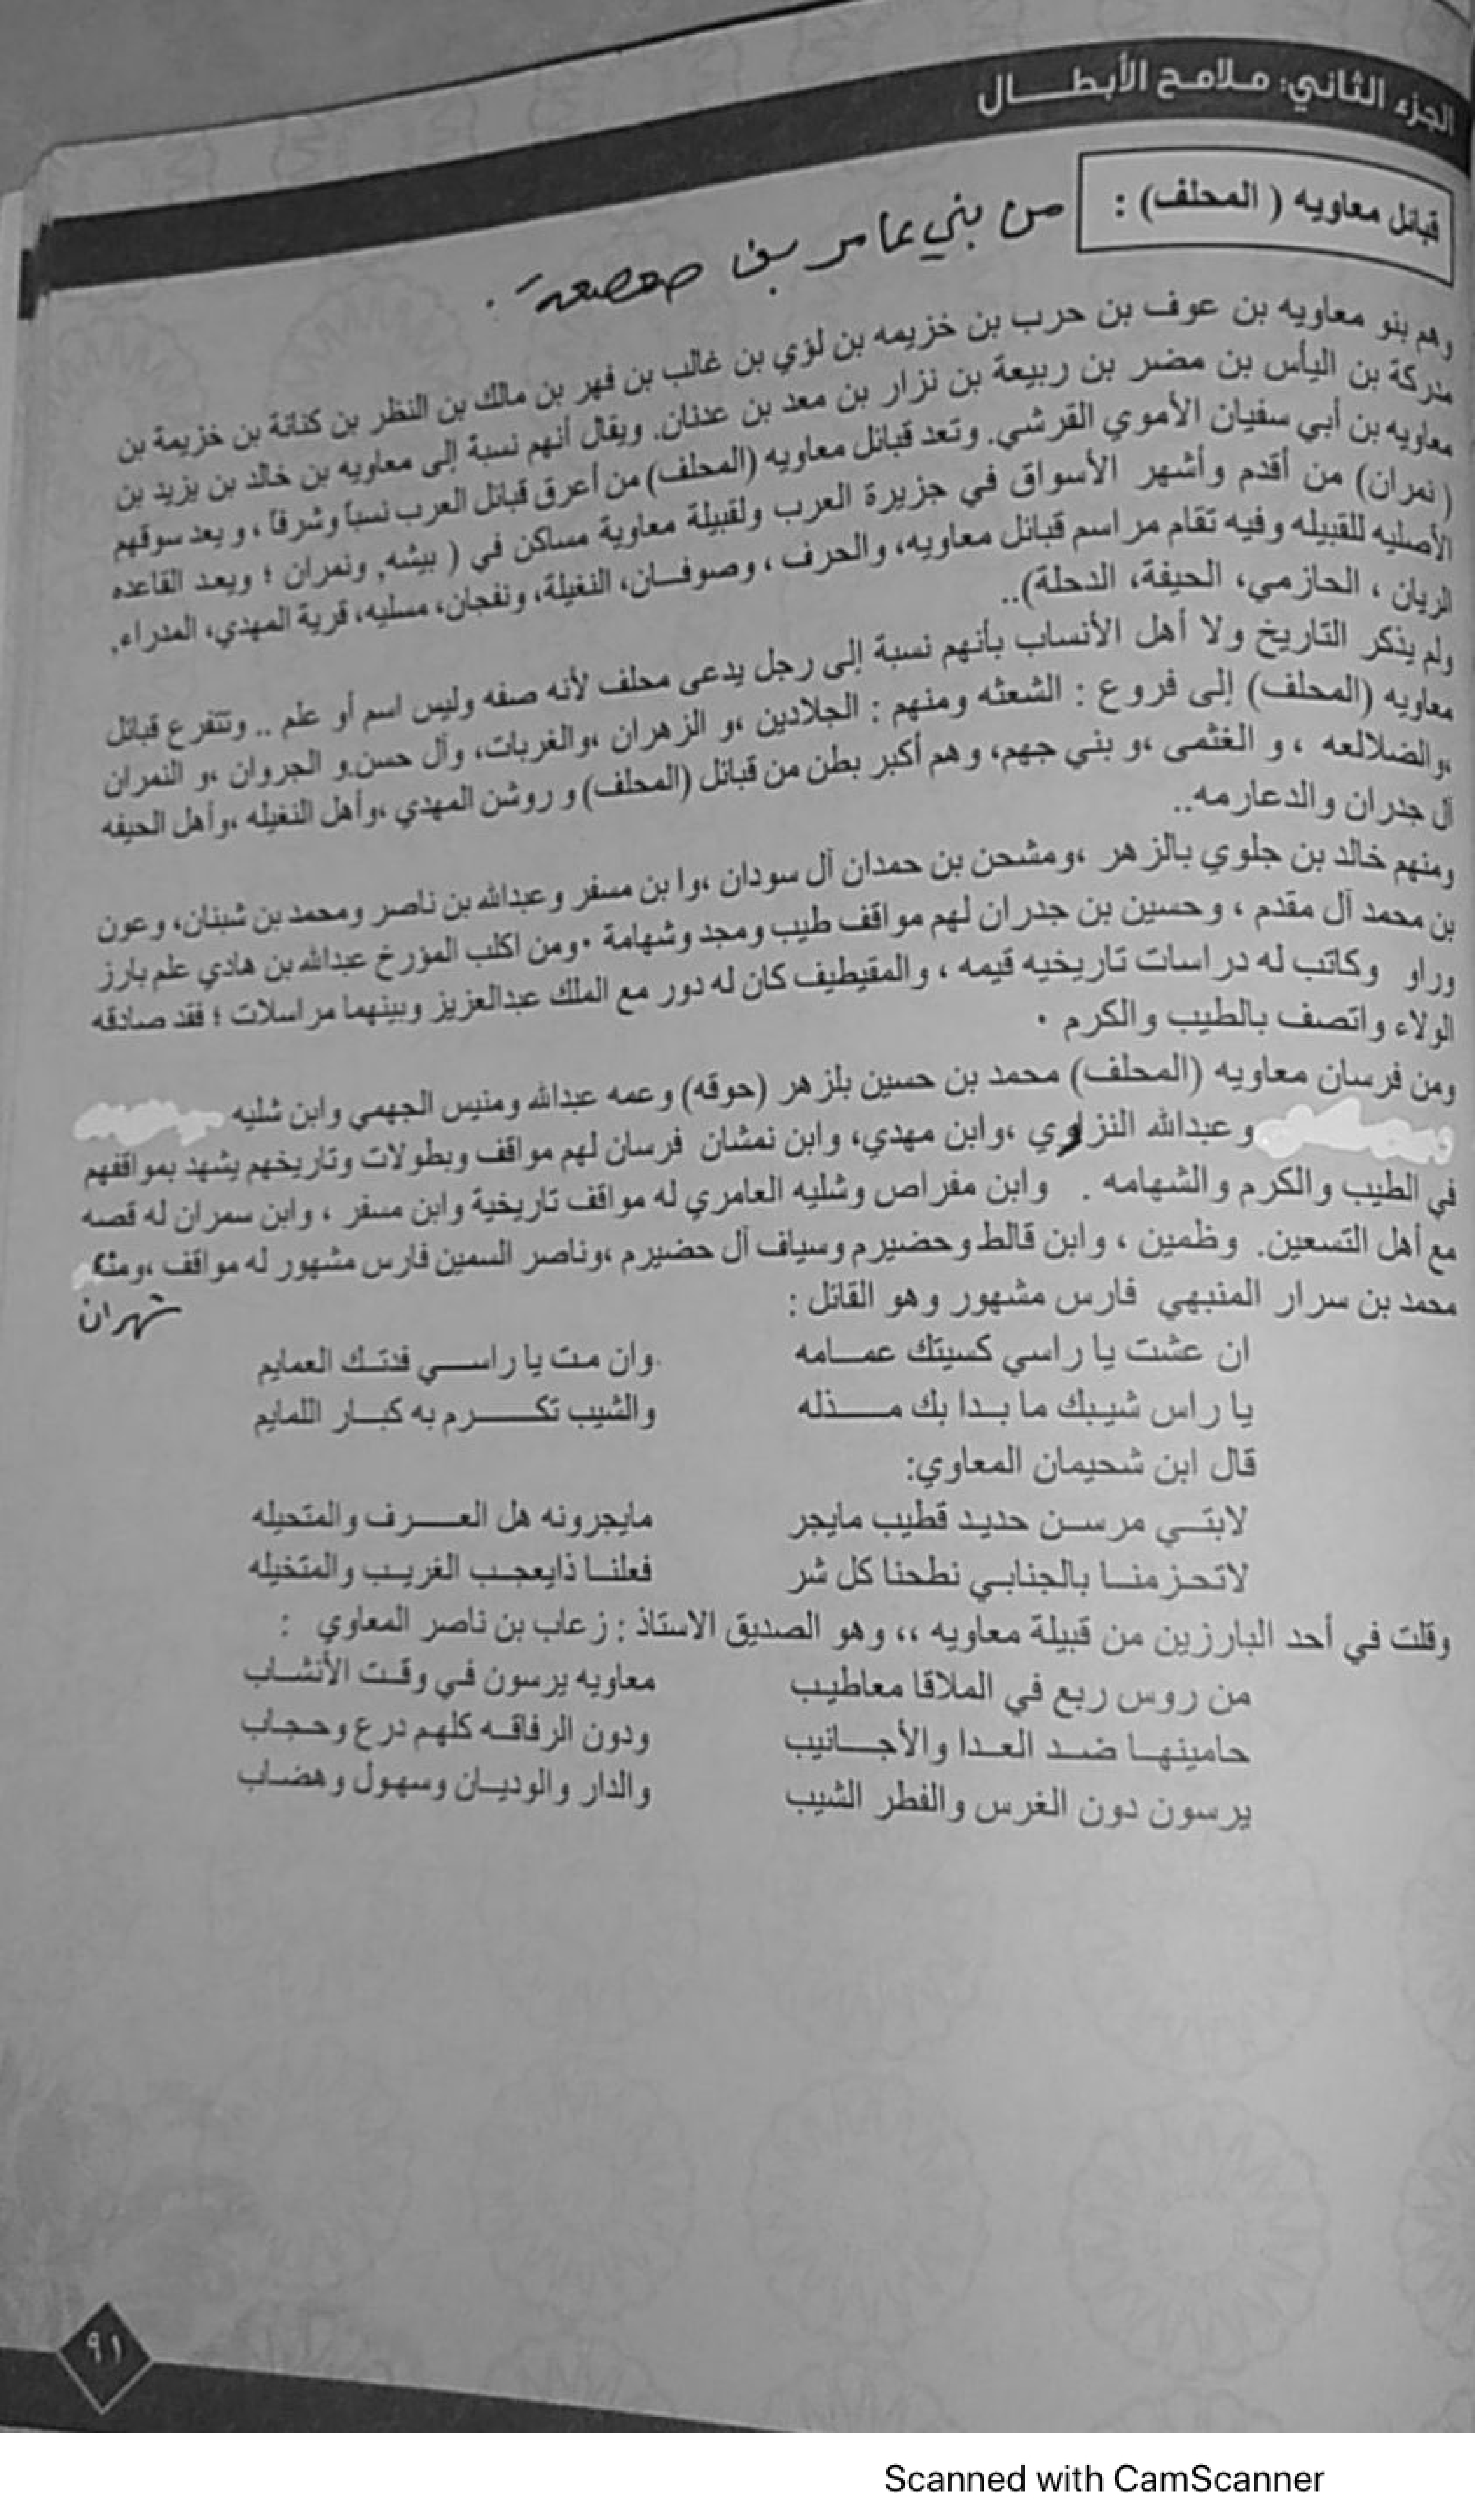 الجزء الثاني: ملامح الأبطـــــال
قبائل معاويه ( المحلف) :
من بني عامر بن صعصعة .
وهم بنو معاويه بن عوف بن حرب بن خزيمه بن لؤي بن غالب بن فهر بن مالك بن النظر بن كنانة بن خزيمة بن
مدركة بن اليأس بن مضر بن ربيعة بن نزار بن معد بن عدنان. ويقال أنهم نسبة إلى معاويه بن خالد بن يزيد بن
معاويه بن أبي سفيان الأموي القرشي. وتعد قبائل معاويه (المحلف) من أعرق قبائل العرب نسباً وشرفاً ، و يعد سوقهم
(نمران) من أقدم وأشهر الأسواق في جزيرة العرب ولقبيلة معاوية مساكن في ( بيشه, ونمران ؛ ويعد القاعده
الأصليه للقبيله وفيه تقام مراسم قبائل معاويه، والحرف ، وصوفــان، النغيلة، ونفجان، مسليه، قرية المهدي، المدراء,
الريان ، الحازمي، الحيفة، الدحلة)..
ولم يذكر التاريخ ولا أهل الأنساب بأنهم نسبة إلى رجل يدعى محلف لأنه صفه وليس اسم أو علم .. وتتفرع قبائل
معاويه (المحلف) إلى فروع : الشعثه ومنهم : الجلادين ،و الزهران ،والغربات، وآل حسن.و الجروان ،و النمران
،والضلالعه ، و الغثمى ،و بني جهم، وهم أكبر بطن من قبائل (المحلف) و روشن المهدي ،وأهل النغيله ،وأهل الحيفه
آل جدران والدعارمه..
ومنهم خالد بن جلوي بالزهر ،ومشحن بن حمدان آل سودان ،وا بن مسفر وعبدالله بن ناصر ومحمد بن شبنان، وعون
بن محمد آل مقدم ، وحسين بن جدران لهم مواقف طيب ومجد وشهامة ٠ومن اكلب المؤرخ عبدالله بن هادي علم بارز
وراو وكاتب له دراسات تاريخيه قيمه ، والمقيطيف كان له دور مع الملك عبدالعزيز وبينهما مراسلات ؛ فقد صادقه
الولاء واتصف بالطيب والكرم ٠
ومن فرسان معاويه (المحلف) محمد بن حسين بلزهر (حوقه) وعمه عبدالله ومنيس الجهمي وابن شليه
و عبدالله النزاوي ،وابن مهدي، وابن نمشان فرسان لهم مواقف وبطولات وتاريخهم يشهد بمواقفهم
في الطيب والكرم والشهامه . وابن مفراص وشليه العامري له مواقف تاريخية وابن مسفر ، وابن سمران له قصه
مع أهل التسعين. وظمين ، وابن قالط وحضيرم وسياف آل حضيرم ،وناصر السمين فارس مشهور له مواقف ،ومن
شهران
محمد بن سرار المنبهي فارس مشهور وهو القائل :
ان عشت يا راسي كسيتك عمــامه وان مت يا راســـي فدتــك العمايم
يا راس شيبك ما بــدا بك مـــــذله والشيب تكـــــرم به كبــار اللمايم
قال ابن شحيمان المعاوي:
لابتـــي مرســن حديد قطيب مايجر مايجرونه هل العــــرف والمتحيله
لاتحــزمنــا بالجنابــي نطحنا كل شر فعلنــا ذايعجــب الغريــب والمتخيله
وقلت في أحد البارزين من قبيلة معاويه ،، وهو الصديق الاستاذ : زعاب بن ناصر المعاوي :
من روس ربع في الملاقا معاطيب معاويه يرسون في وقــت الأنشــاب
حامينهــا ضــد العــدا والأجـــانيب ودون الرفاقــه كلهم درع وحجــاب
يرسون دون الغرس والفطر الشيب والدار والوديــان وسهول وهضــاب
٩١
Scanned with CamScanner